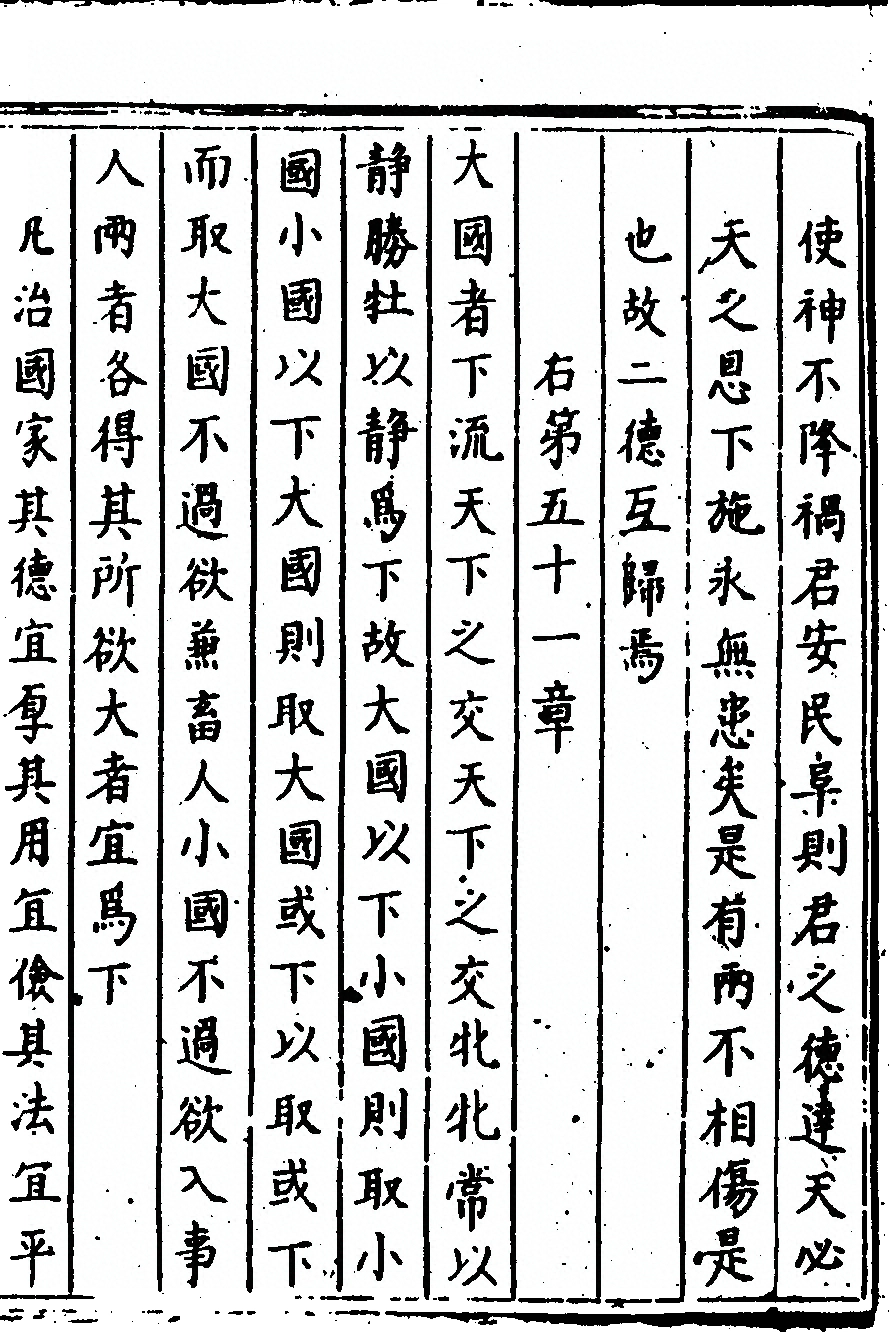 使神不降禍君安民阜則君之德達天必
天之恩下施永無患矣是有兩不相傷是
也故二德互歸焉
右第五十一章
大國者下流天下之交天下之交牝牝常以
靜勝牡以靜爲下故大國以下小國則取小
國小國以下大國則取大國或下以取或下
而取大國不過欲兼畜人小國不過欲入事
人兩者各得其所欲大者宜爲下
凡治國家其德宜厚其用宜儉其法宜平